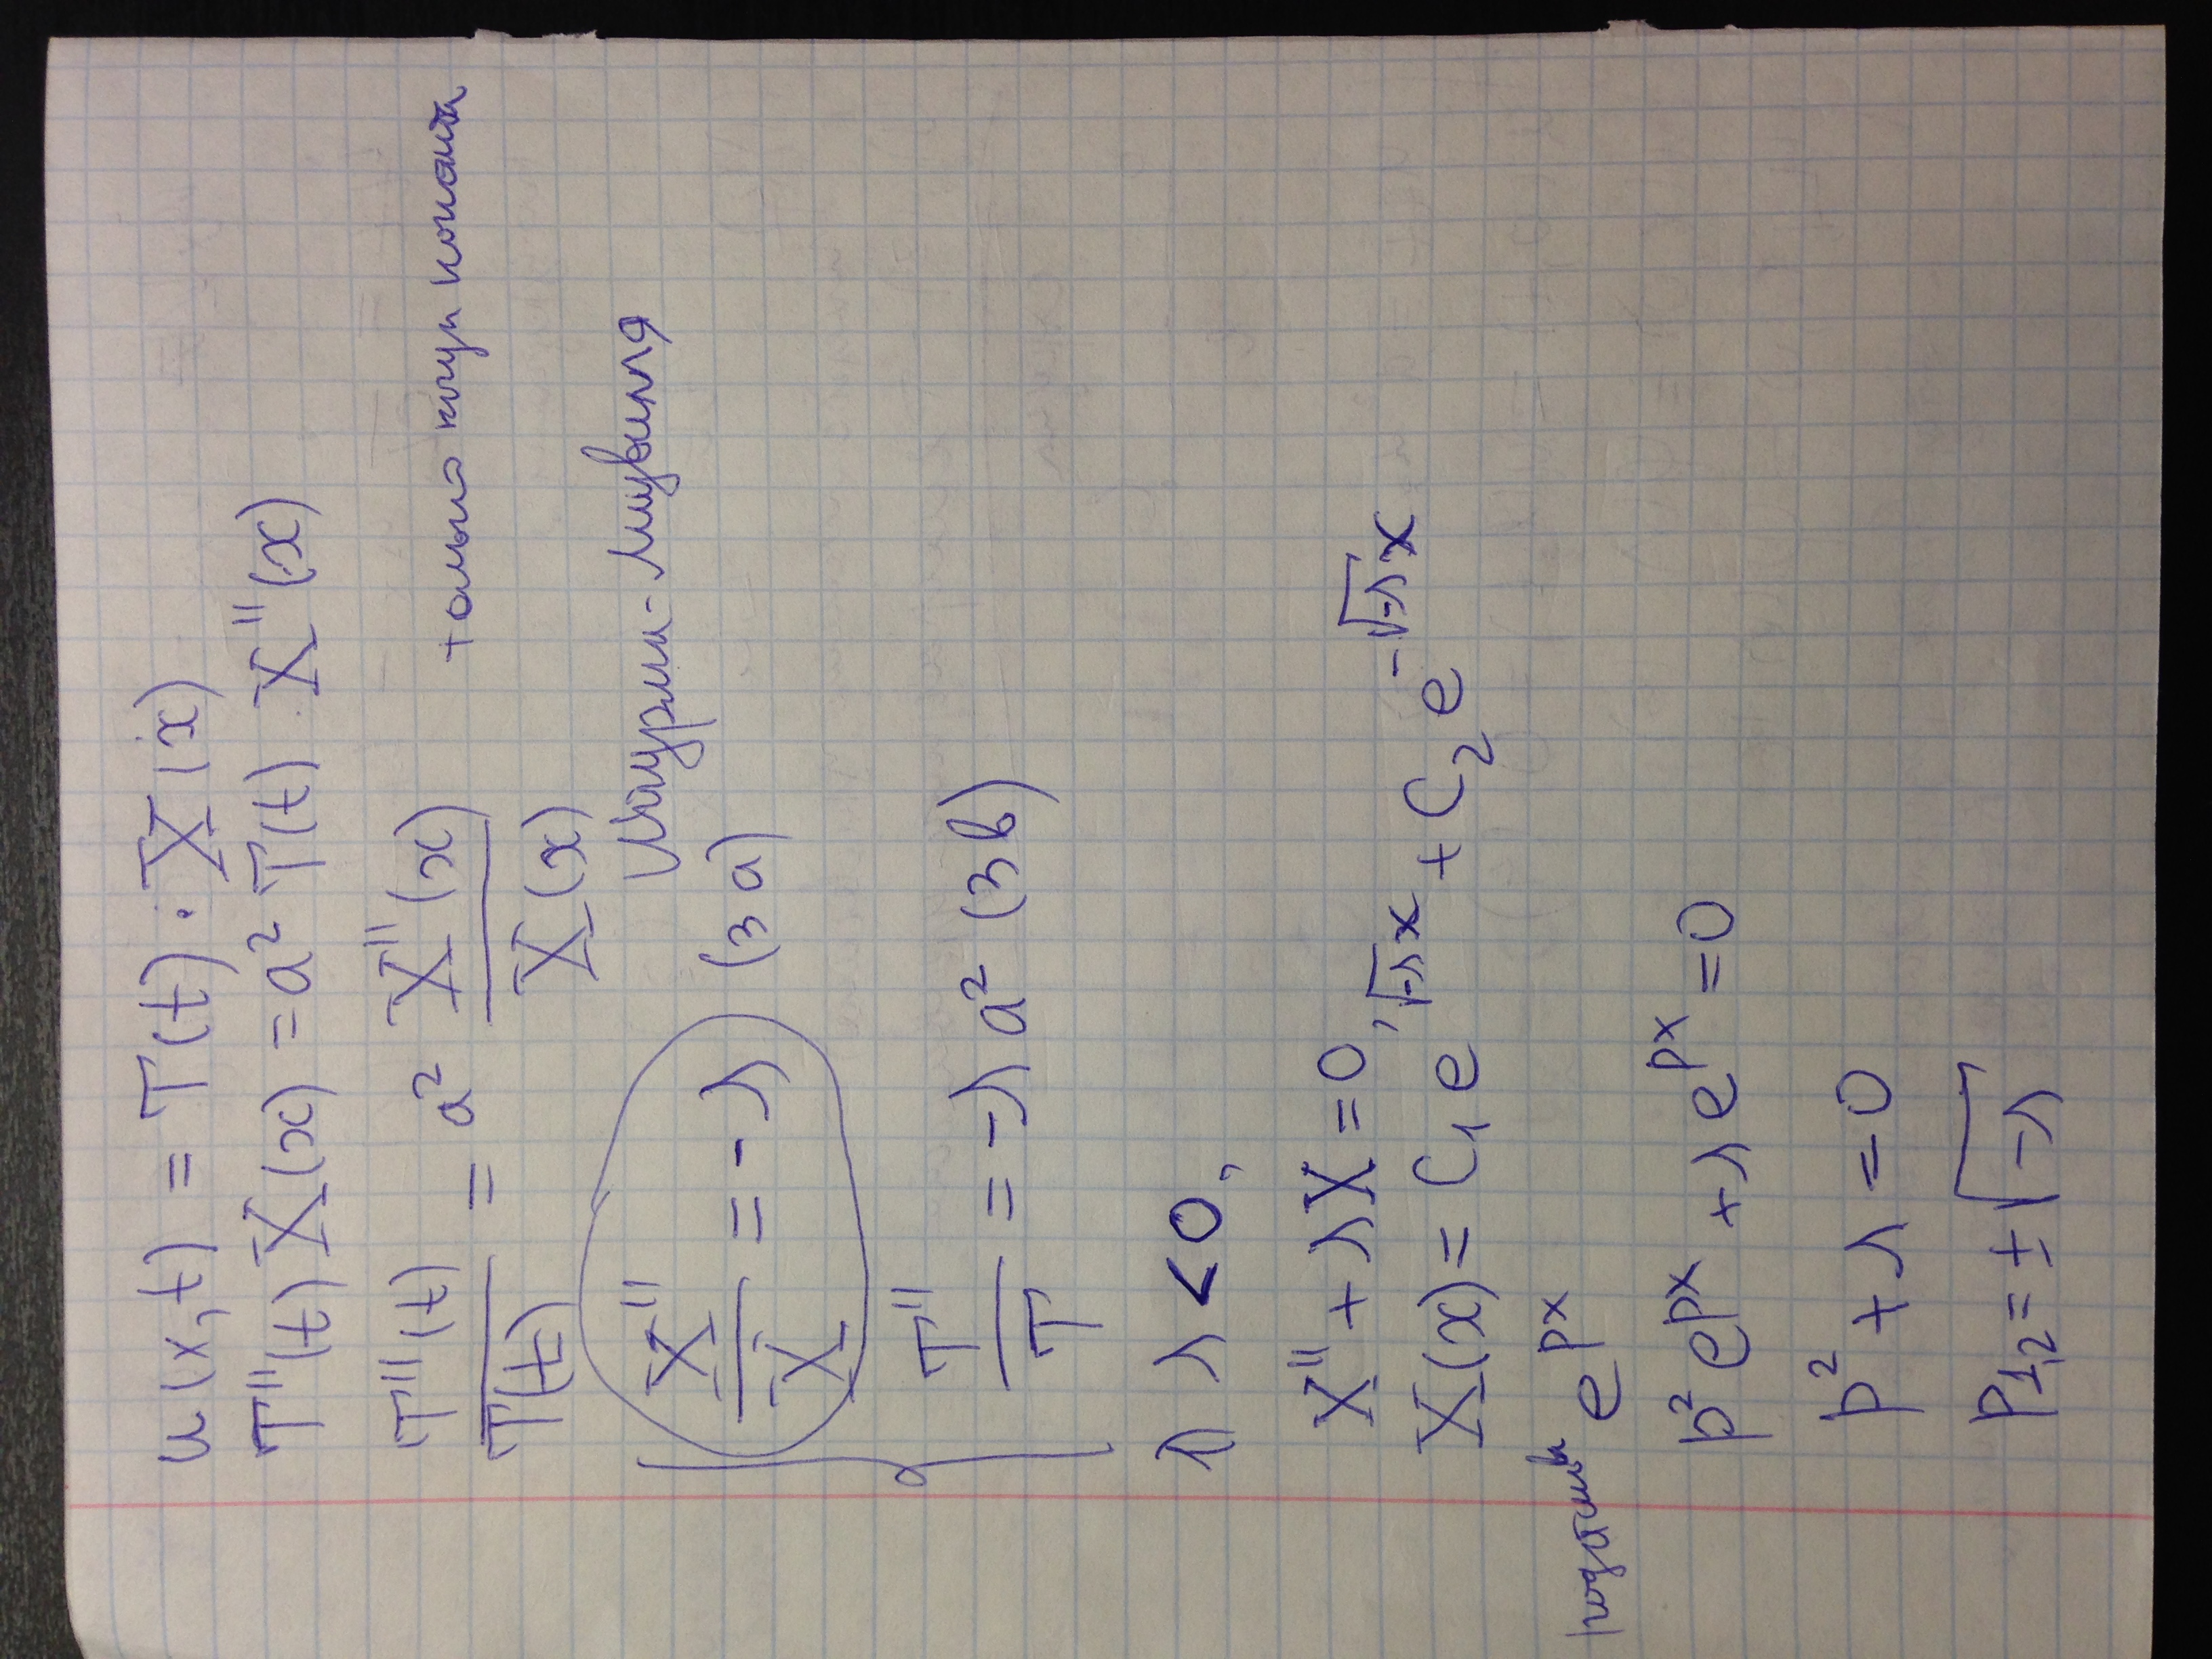 u(x,t) = T(t) · X(x)
T''(t) X(x) = a² T(t) · X''(x)
T''(t)/T(t) = a² X''(x)/X(x)
только когда константа
Штурма-Лиувилля
X''/X = -λ (3a)
T''/T = -λ a² (3b)
1) λ < 0,
X'' + λX = 0,
X(x) = C₁ e^{√-λ x} + C₂ e^{-√-λ x}
e^{px}
p² e^{px} + λ e^{px} = 0
p² + λ = 0
p₁,₂ = ± √-λ